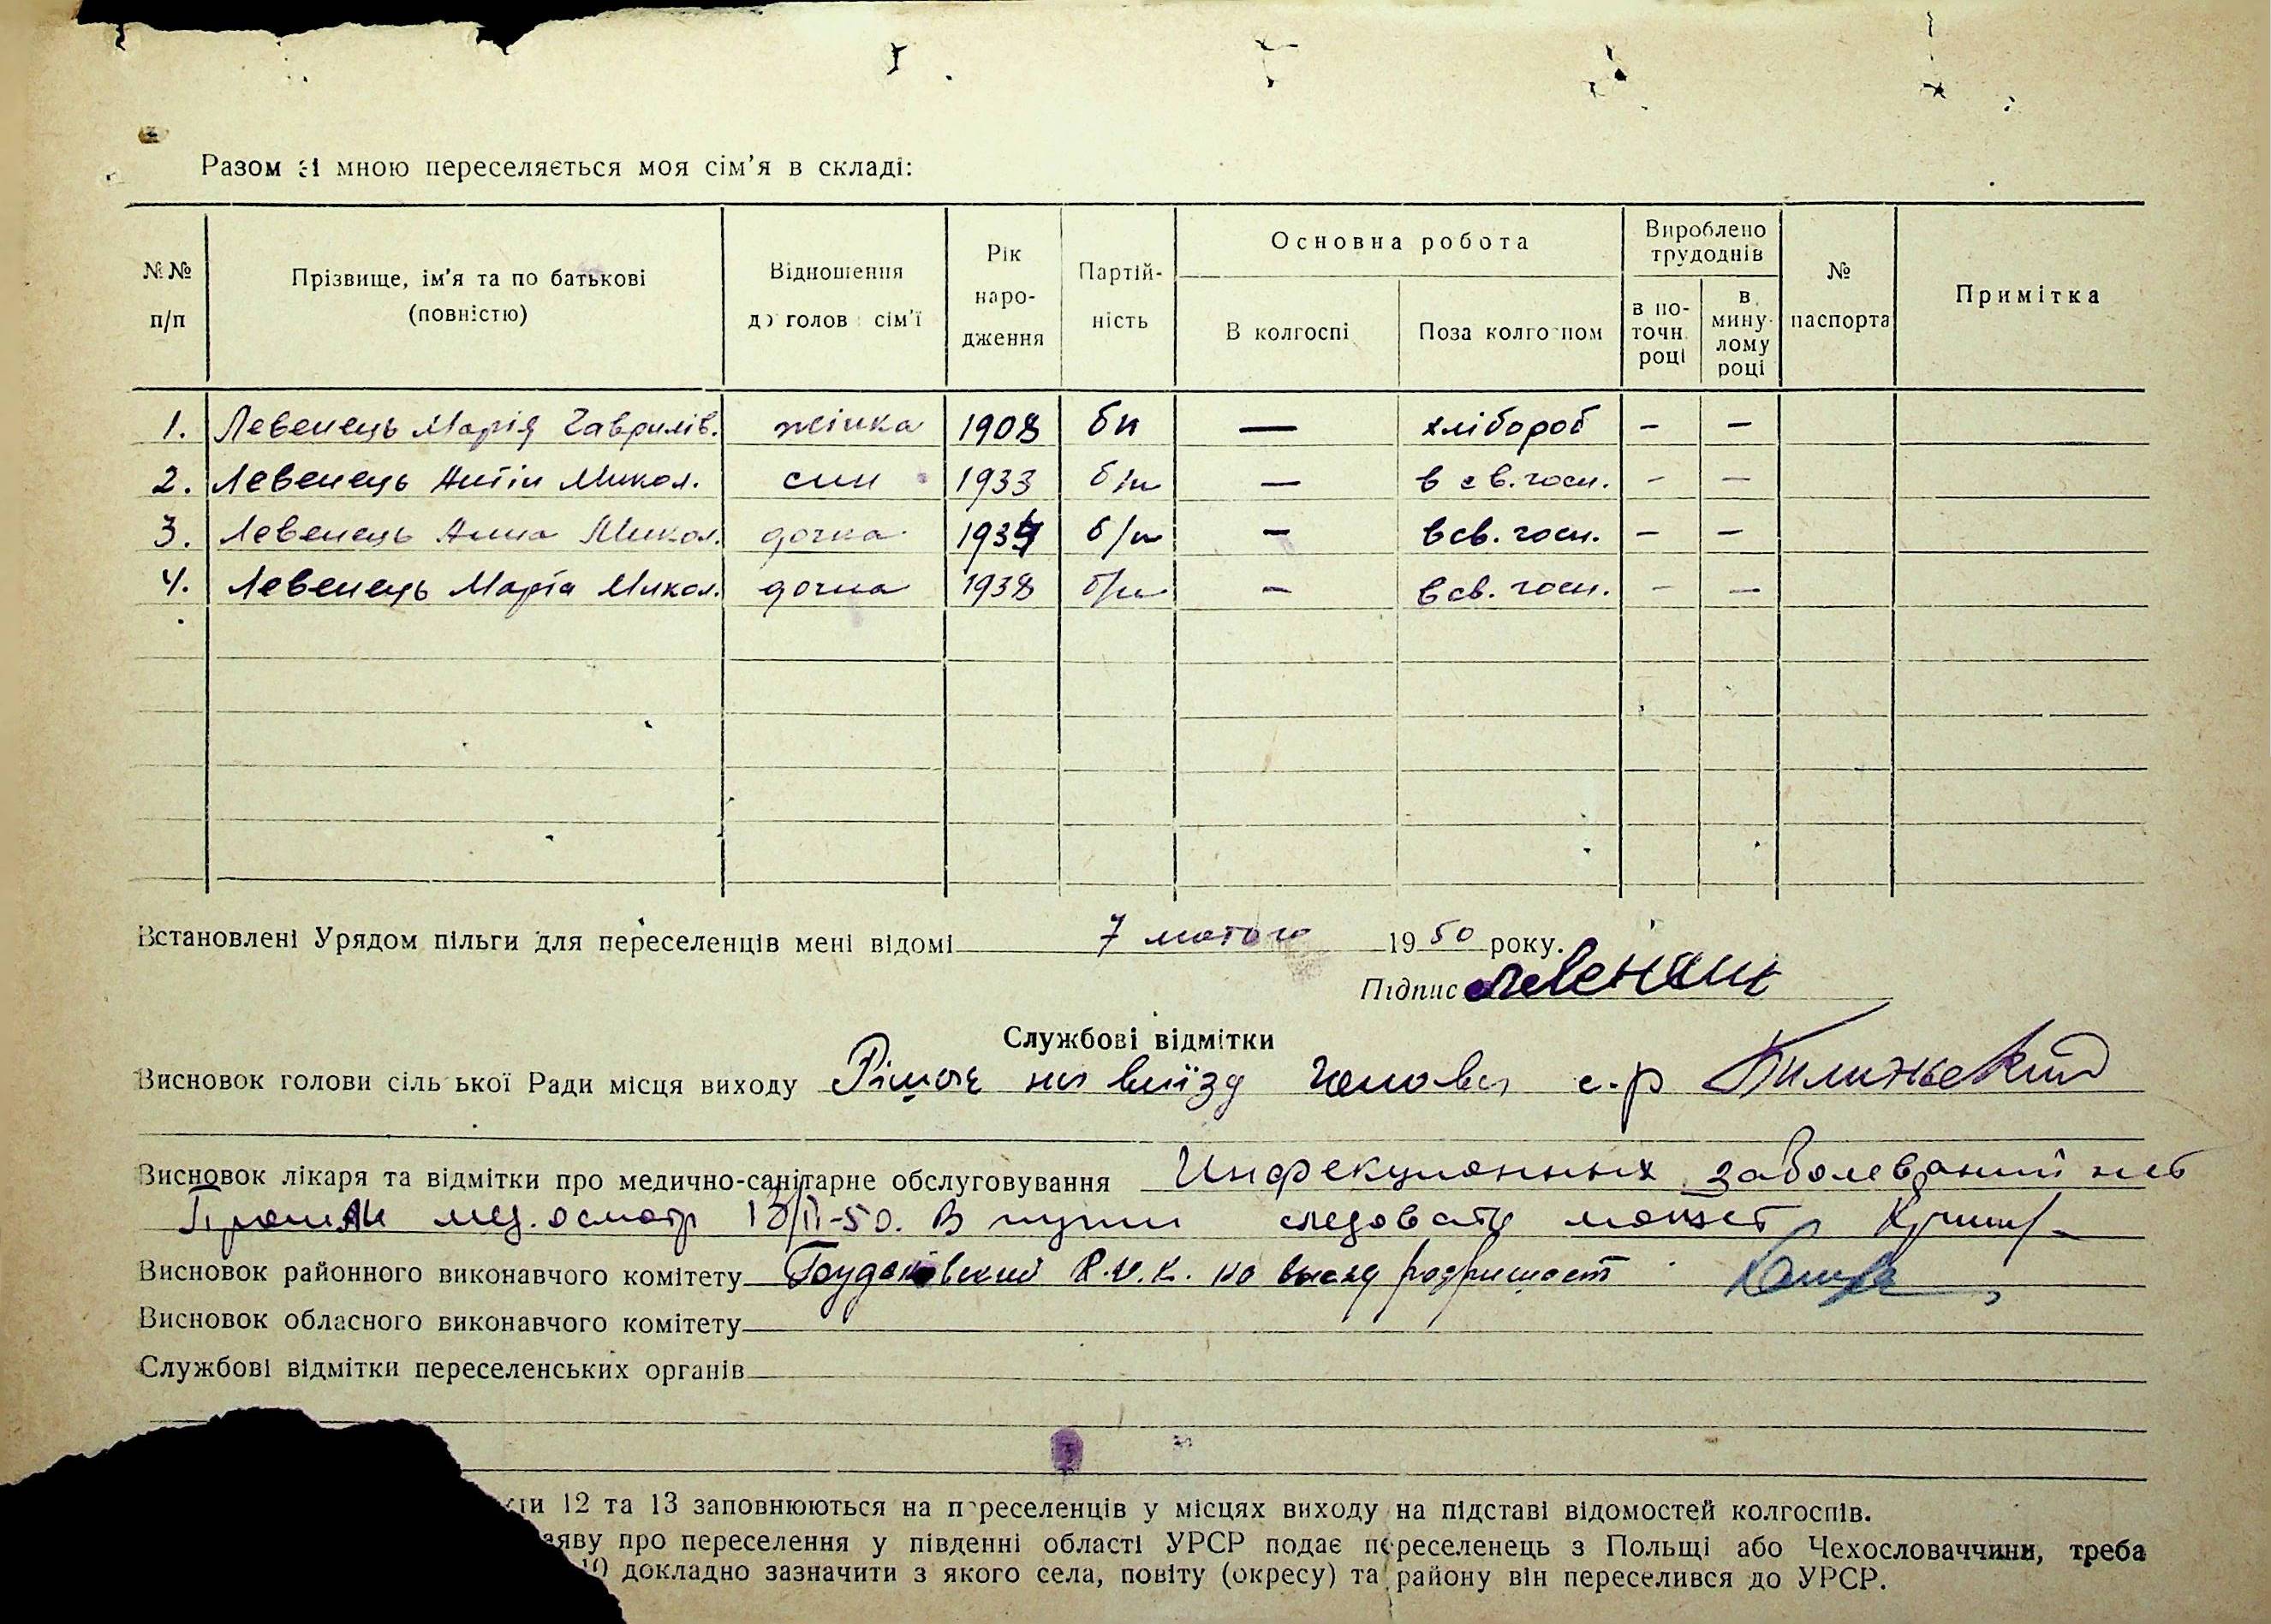 Разом зі мною переселяється моя сім'я в складі:
№№ п/п
Прізвище, ім'я та по батькові (повністю)
Відношення до голов сім'ї
Рік народження
Партійність
Основна робота
В колгоспі
Поза колго пом
Вироблено трудоднів
в поточн. році
в минулому році
№ паспорта
Примітка
1. Левенець Марія Гаврилів. жінка 1908 бп — хлібороб — —
2. Левенець Антін Микол. син 1933 б/п — в св. госп. — —
3. Левенець Анна Микол. дочка 1934 б/п — в св. госп. — —
4. Левенець Марія Микол. дочка 1938 б/п — в св. госп. — —
Встановлені Урядом пільги для переселенців мені відомі 7 лютого 1950 року.
Підпис
Службові відмітки
Висновок голови сіль ької Ради місця виходу на виїзд голова с.р
Висновок лікаря та відмітки про медично-санітарне обслуговування Инфекционных заболеваний нет
мед. осмотр II-50. В пути следовать может
Висновок районного виконавчого комітету Р.И.К. на выезд
Висновок обласного виконавчого комітету
Службові відмітки переселенських органів
кти 12 та 13 заповнюються на переселенців у місцях виходу на підставі відомостей колгоспів.
аяву про переселення у південні області УРСР подає переселенець з Польщі або Чехословаччини, треба
10 докладно зазначити з якого села, повіту (окресу) та району він переселився до УРСР.